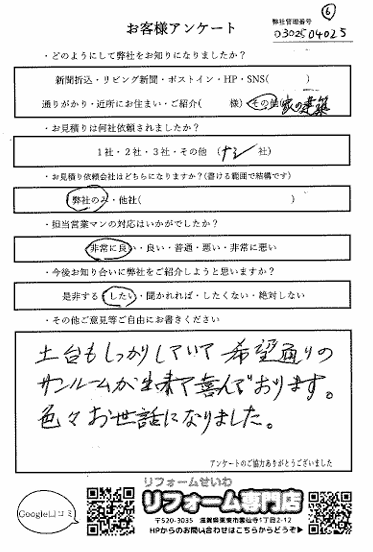 ⑥
お客様アンケート
弊社管理番号
0302504025
・どのようにして弊社をお知りになりましたか?
新聞折込・リビング新聞・ポストイン・HP・SNS( )
通りがかり・近所にお住まい・ご紹介( 様)その他 家の建築
・お見積りは何社依頼されましたか?
1社・2社・3社・その他 (なし 社)
・お見積り依頼会社はどちらになりますか?(書ける範囲で結構です)
弊社のみ・他社( )
・担当営業マンの対応はいかがでしたか?
非常に良い・良い・普通・悪い・非常に悪い
・今後お知り合いに弊社をご紹介しようと思いますか?
是非する・したい・聞かれれば・したくない・絶対しない
・その他ご意見等ご自由にお書きください
土台もしっかりしていて希望通りの
サンルームが出来て喜んでおります。
色々お世話になりました。
アンケートのご協力ありがとうございました
Google口コミ
リフォームせいわ
リフォーム専門店
〒520-3035 滋賀県栗東市霊仙寺1丁目2-12
HPからのお問い合わせはこちらからどうぞ▶